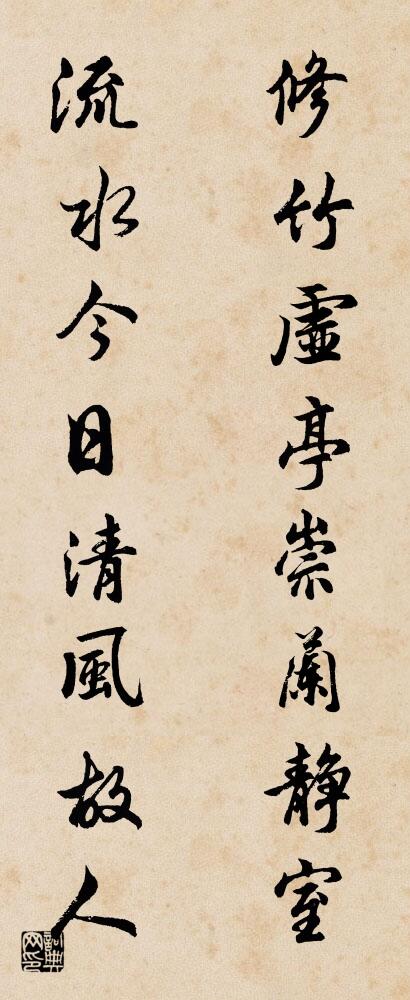 修竹虛亭崇蘭靜室
流水今日清風故人